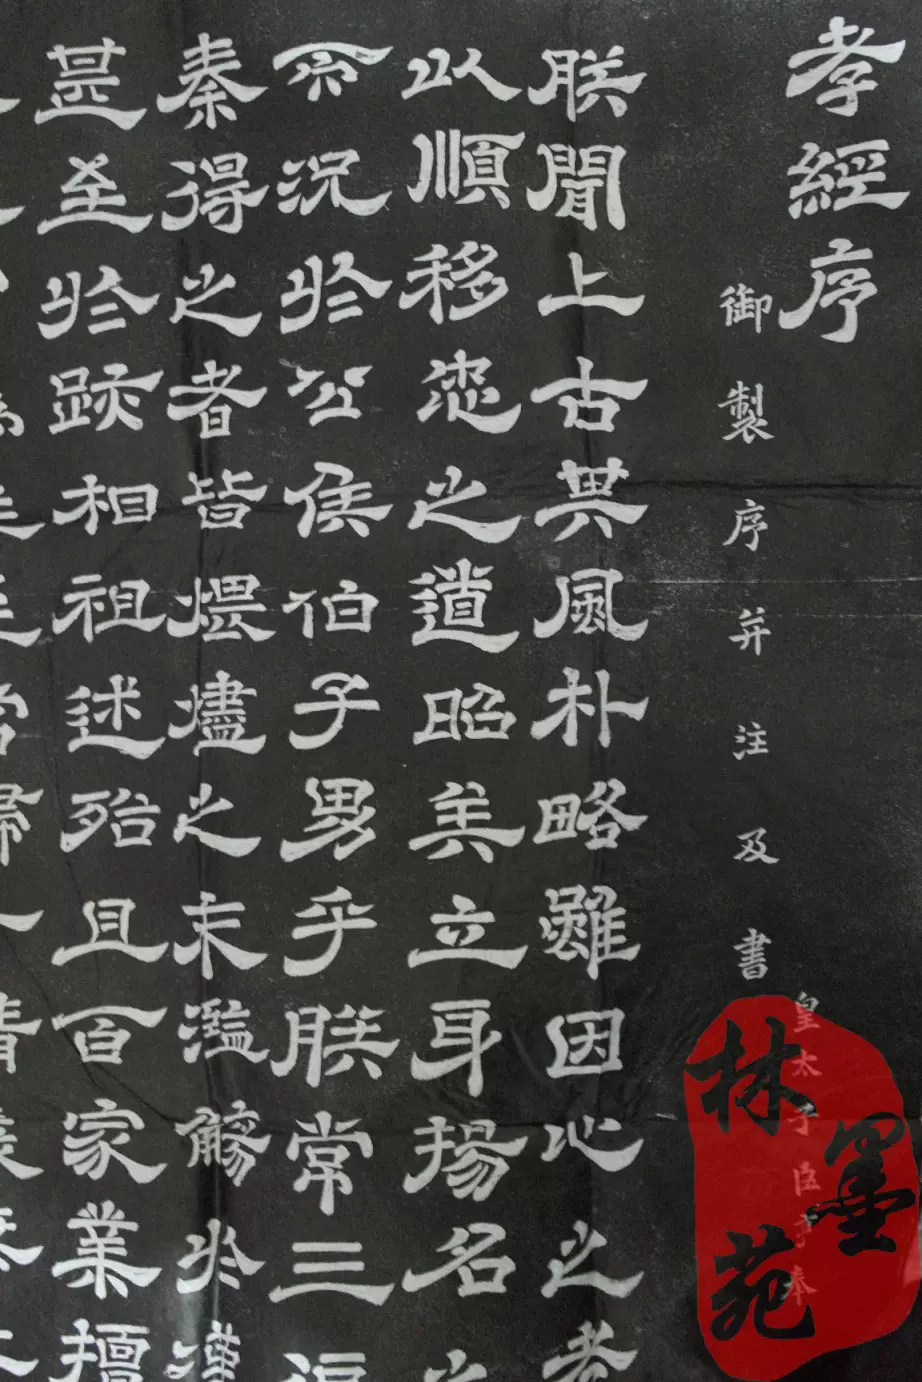 孝經序
御製序并注及書
皇太子臣亨奉
朕聞上古其風朴略雖因心之孝
以順移忠之道昭矣立身揚名之
而況於公侯伯子男乎朕常三
秦得之者皆煨燼之末濫觴於漢
甚至於跡相祖述殆且百家業擅
墨
林苑